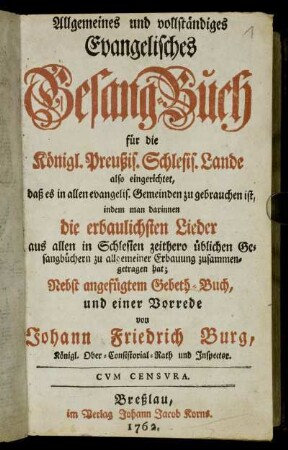 1
Allgemeines und vollständiges
Evangelisches
Gesang-Buch
für die
Königl. Preußis. Schlesis. Lande
also eingerichtet,
daß es in allen evangelis. Gemeinden zu gebrauchen ist,
indem man darinnen
die erbaulichsten Lieder
aus allen in Schlesien zeithero üblichen Ge-
sangbüchern zu allgemeiner Erbauung zusammen-
getragen hat;
Nebst angefügtem Gebeth-Buch,
und einer Vorrede
von
Johann Friedrich Burg,
Königl. Ober-Consistorial-Rath und Inspector.
CVM CENSVRA.
Breßlau,
im Verlag Johann Jacob Korns.
1762.